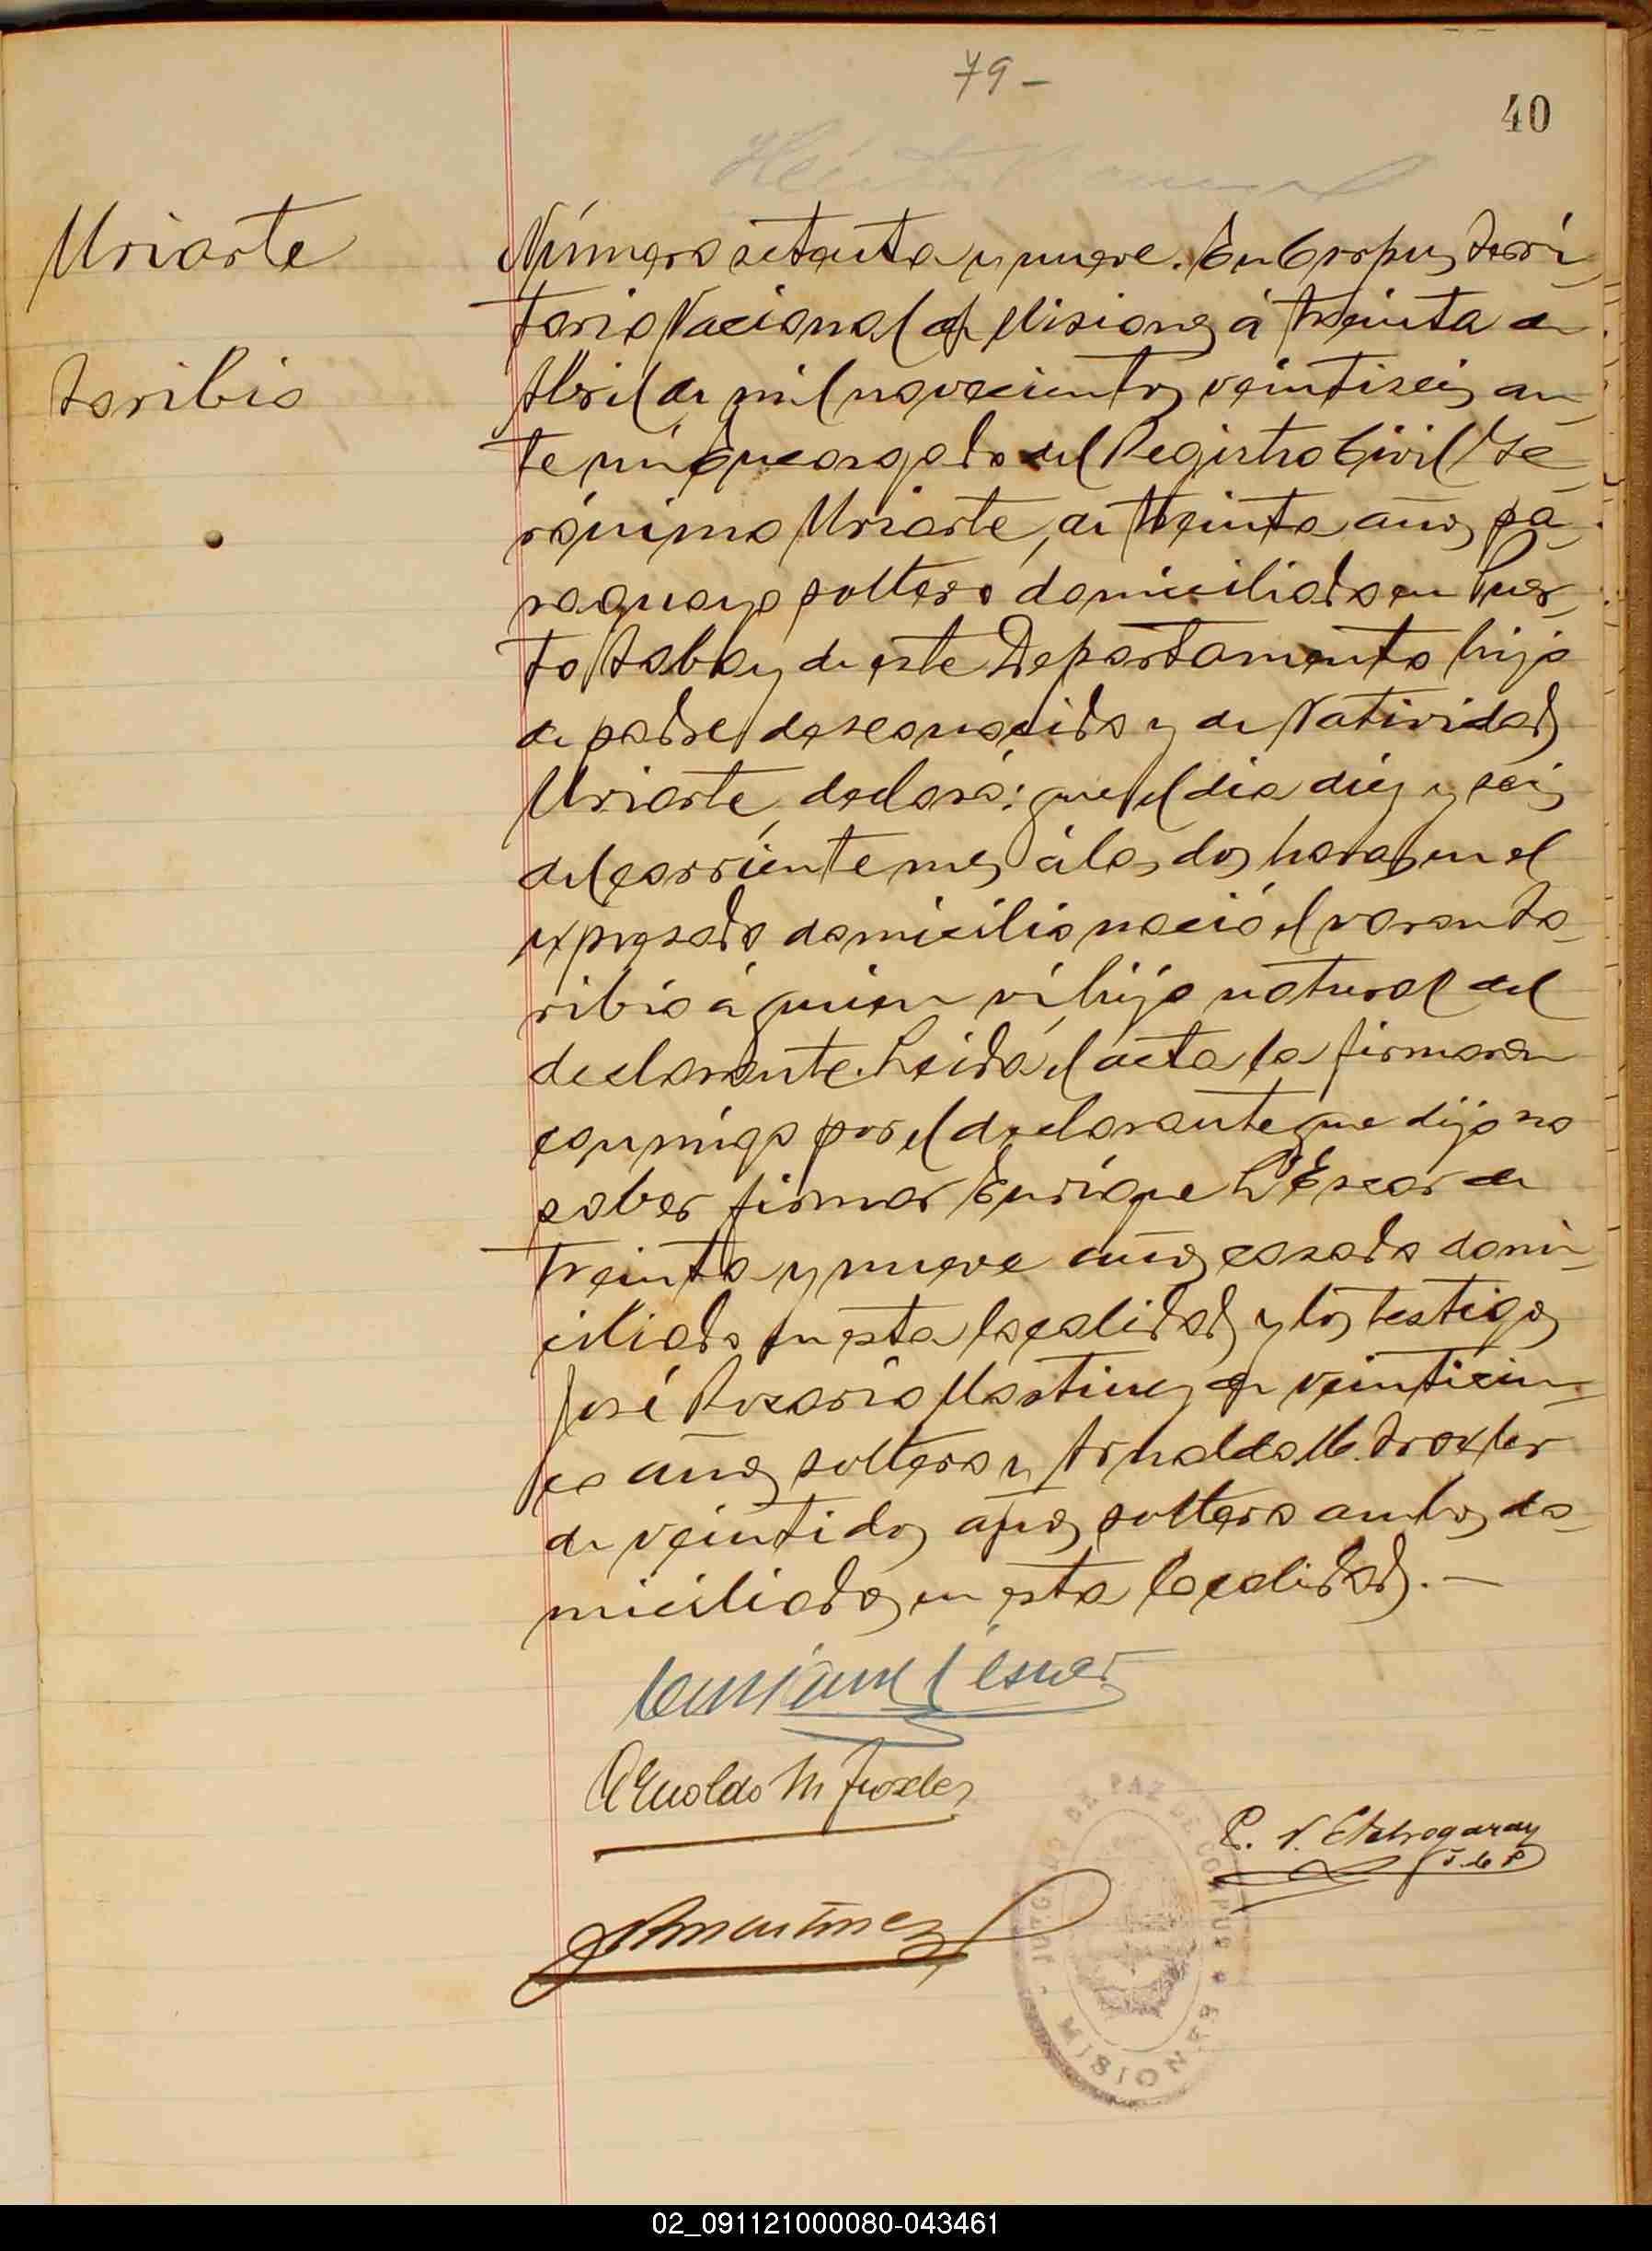 79-
40
Uriarte
Toribio
Número setenta y nueve. En Corpus, Terri-
torio Nacional de Misiones, á treinta de
Abril de mil novecientos veintiseis, an-
te mi Encargado del Registro Civil, Je-
rónimo Uriarte, de treinta años, pa-
raguayo, soltero domiciliado en Puer-
to Tabay de este Departamento hijo
de padre desconocido y de Natividad
Uriarte, declaró: que el dia diez y seis
del corriente mes á las dos horas en el
expresado domicilio nació el varon To-
ribio á quien ví, hijo natural del
declarante. Leida el acta la firmaron
conmigo por el declarante que dijo no
saber firmar Enrique L'Escar de
treinta y nueve años, casado domi-
ciliado en esta localidad y los testigos
José Rosario Martinez de veinticin-
co años, soltero y Arnaldo M. Troxler
de veintidos años, soltero ambos do-
miciliados en esta localidad. —
Arnoldo M Troxler
P. V. Etchegaray
J. de P
JRMartinez
JUZGADO DE PAZ DE CORPUS
MISIONES
02_091121000080-043461